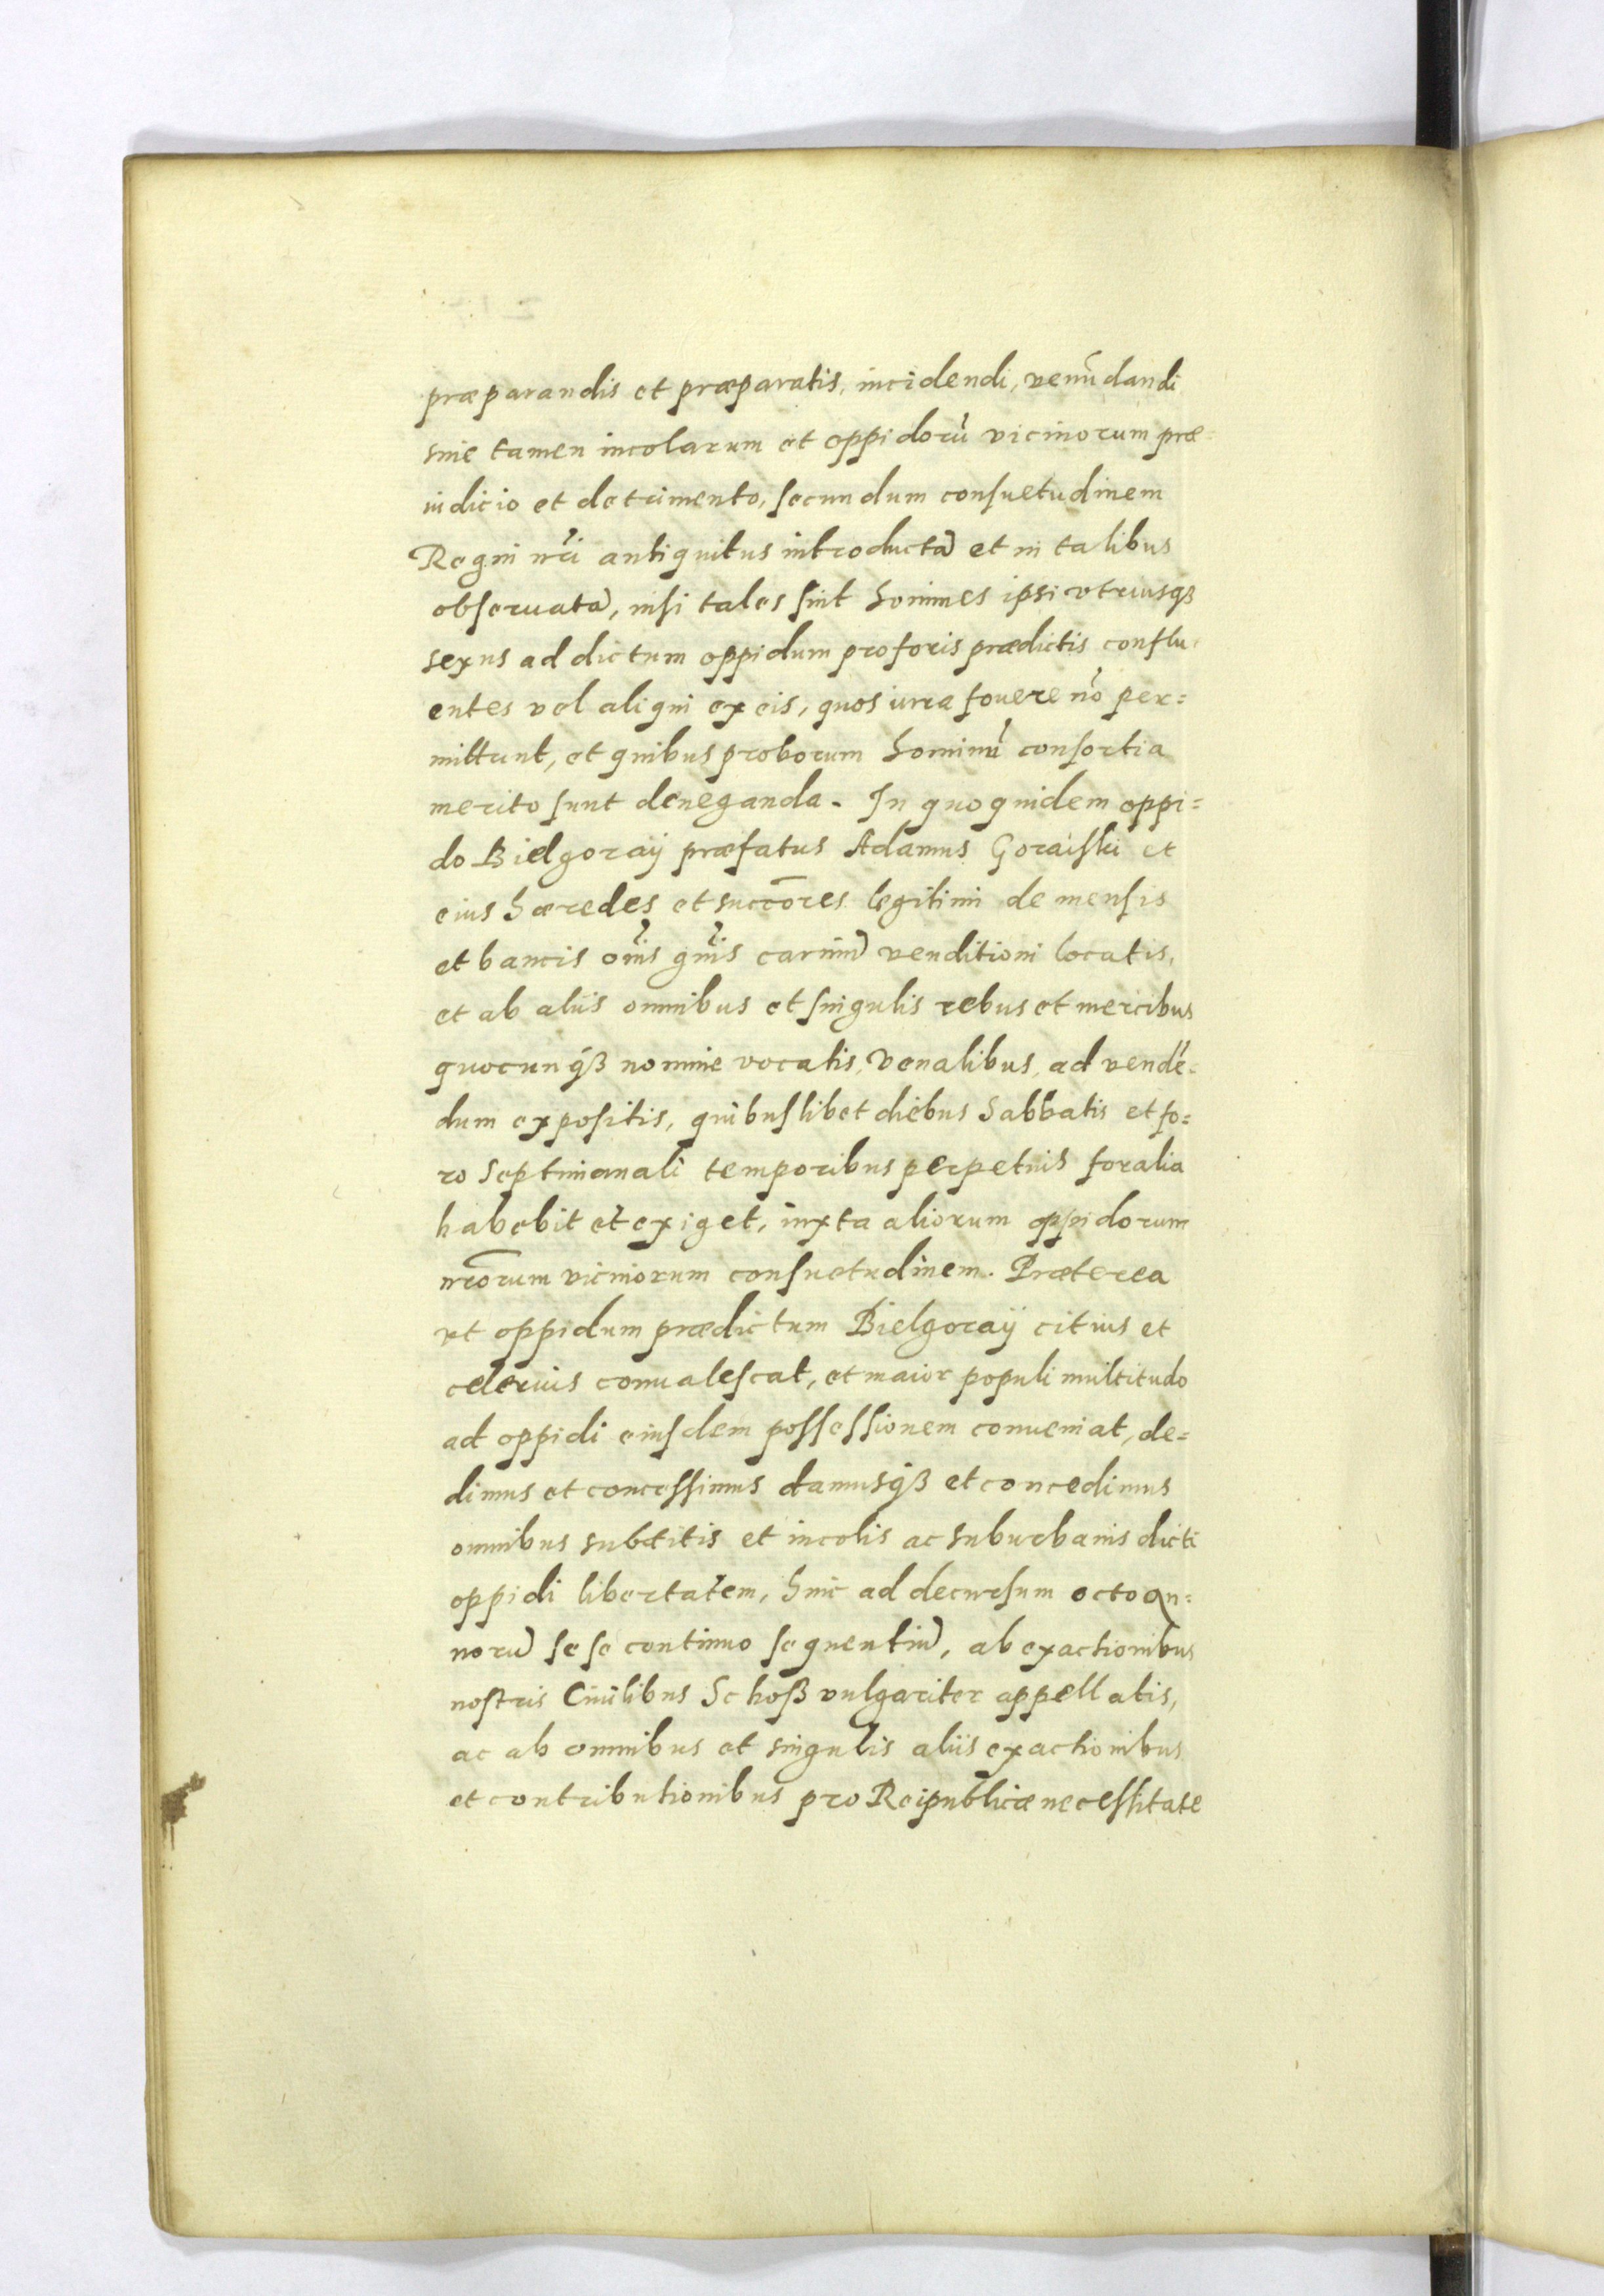 præparandis et præparatis, incidendi, venūdandi
sine tamen incolarum et oppidorū vicinorum præ=
iudicio et detrimento, secundum consuetudinem
Regni nrĩ antiquitus introductã et in talibus
obseruatã, nisi tales sint homines ipsi vtriusqȝ
sexus ad dictum oppidum pro foris prædictis conflu,
entes vel aliqui ex eis, quos iura fouere nō per=
mittunt, et quibus proborum hominū consortia
merito sunt deneganda. In quo quidem oppi=
do Bielgoraÿ præfatus Adamus Goraiski et
eius hæredes et succōres legitimi de mensis
et bancis oĩs gñis carniũ venditioni locatis,
et ab aliis omnibus et singulis rebus et mercibus
quocunqȝ nomine vocatis, venalibus, ad vendē=
dum expositis, quibuslibet diebus Sabbatis et fo=
ro Septimanali temporibus perpetuis foralia
habebit et exiget, iuxta aliorum oppidorum
nrōrum vicinorum consuetudinem. Præterea
vt oppidum prædictum Bielgoraÿ citius et
celerius conualescat, et maior populi multitudo
ad oppidi eiusdem possessionem conueniat, de=
dimus et concessimus damusqȝ et concedimus
omnibus subditis et incolis ac suburbanis dicti
oppidi libertatem, hinc ad decursum octo an=
norũ sese continuo sequentiũ, ab exactionibus
nostris Ciuilibus Schoß vulgariter appellatis,
ac ab omnibus et singulis aliis exactionibus
et contributionibus pro Reipublicæ necessitate